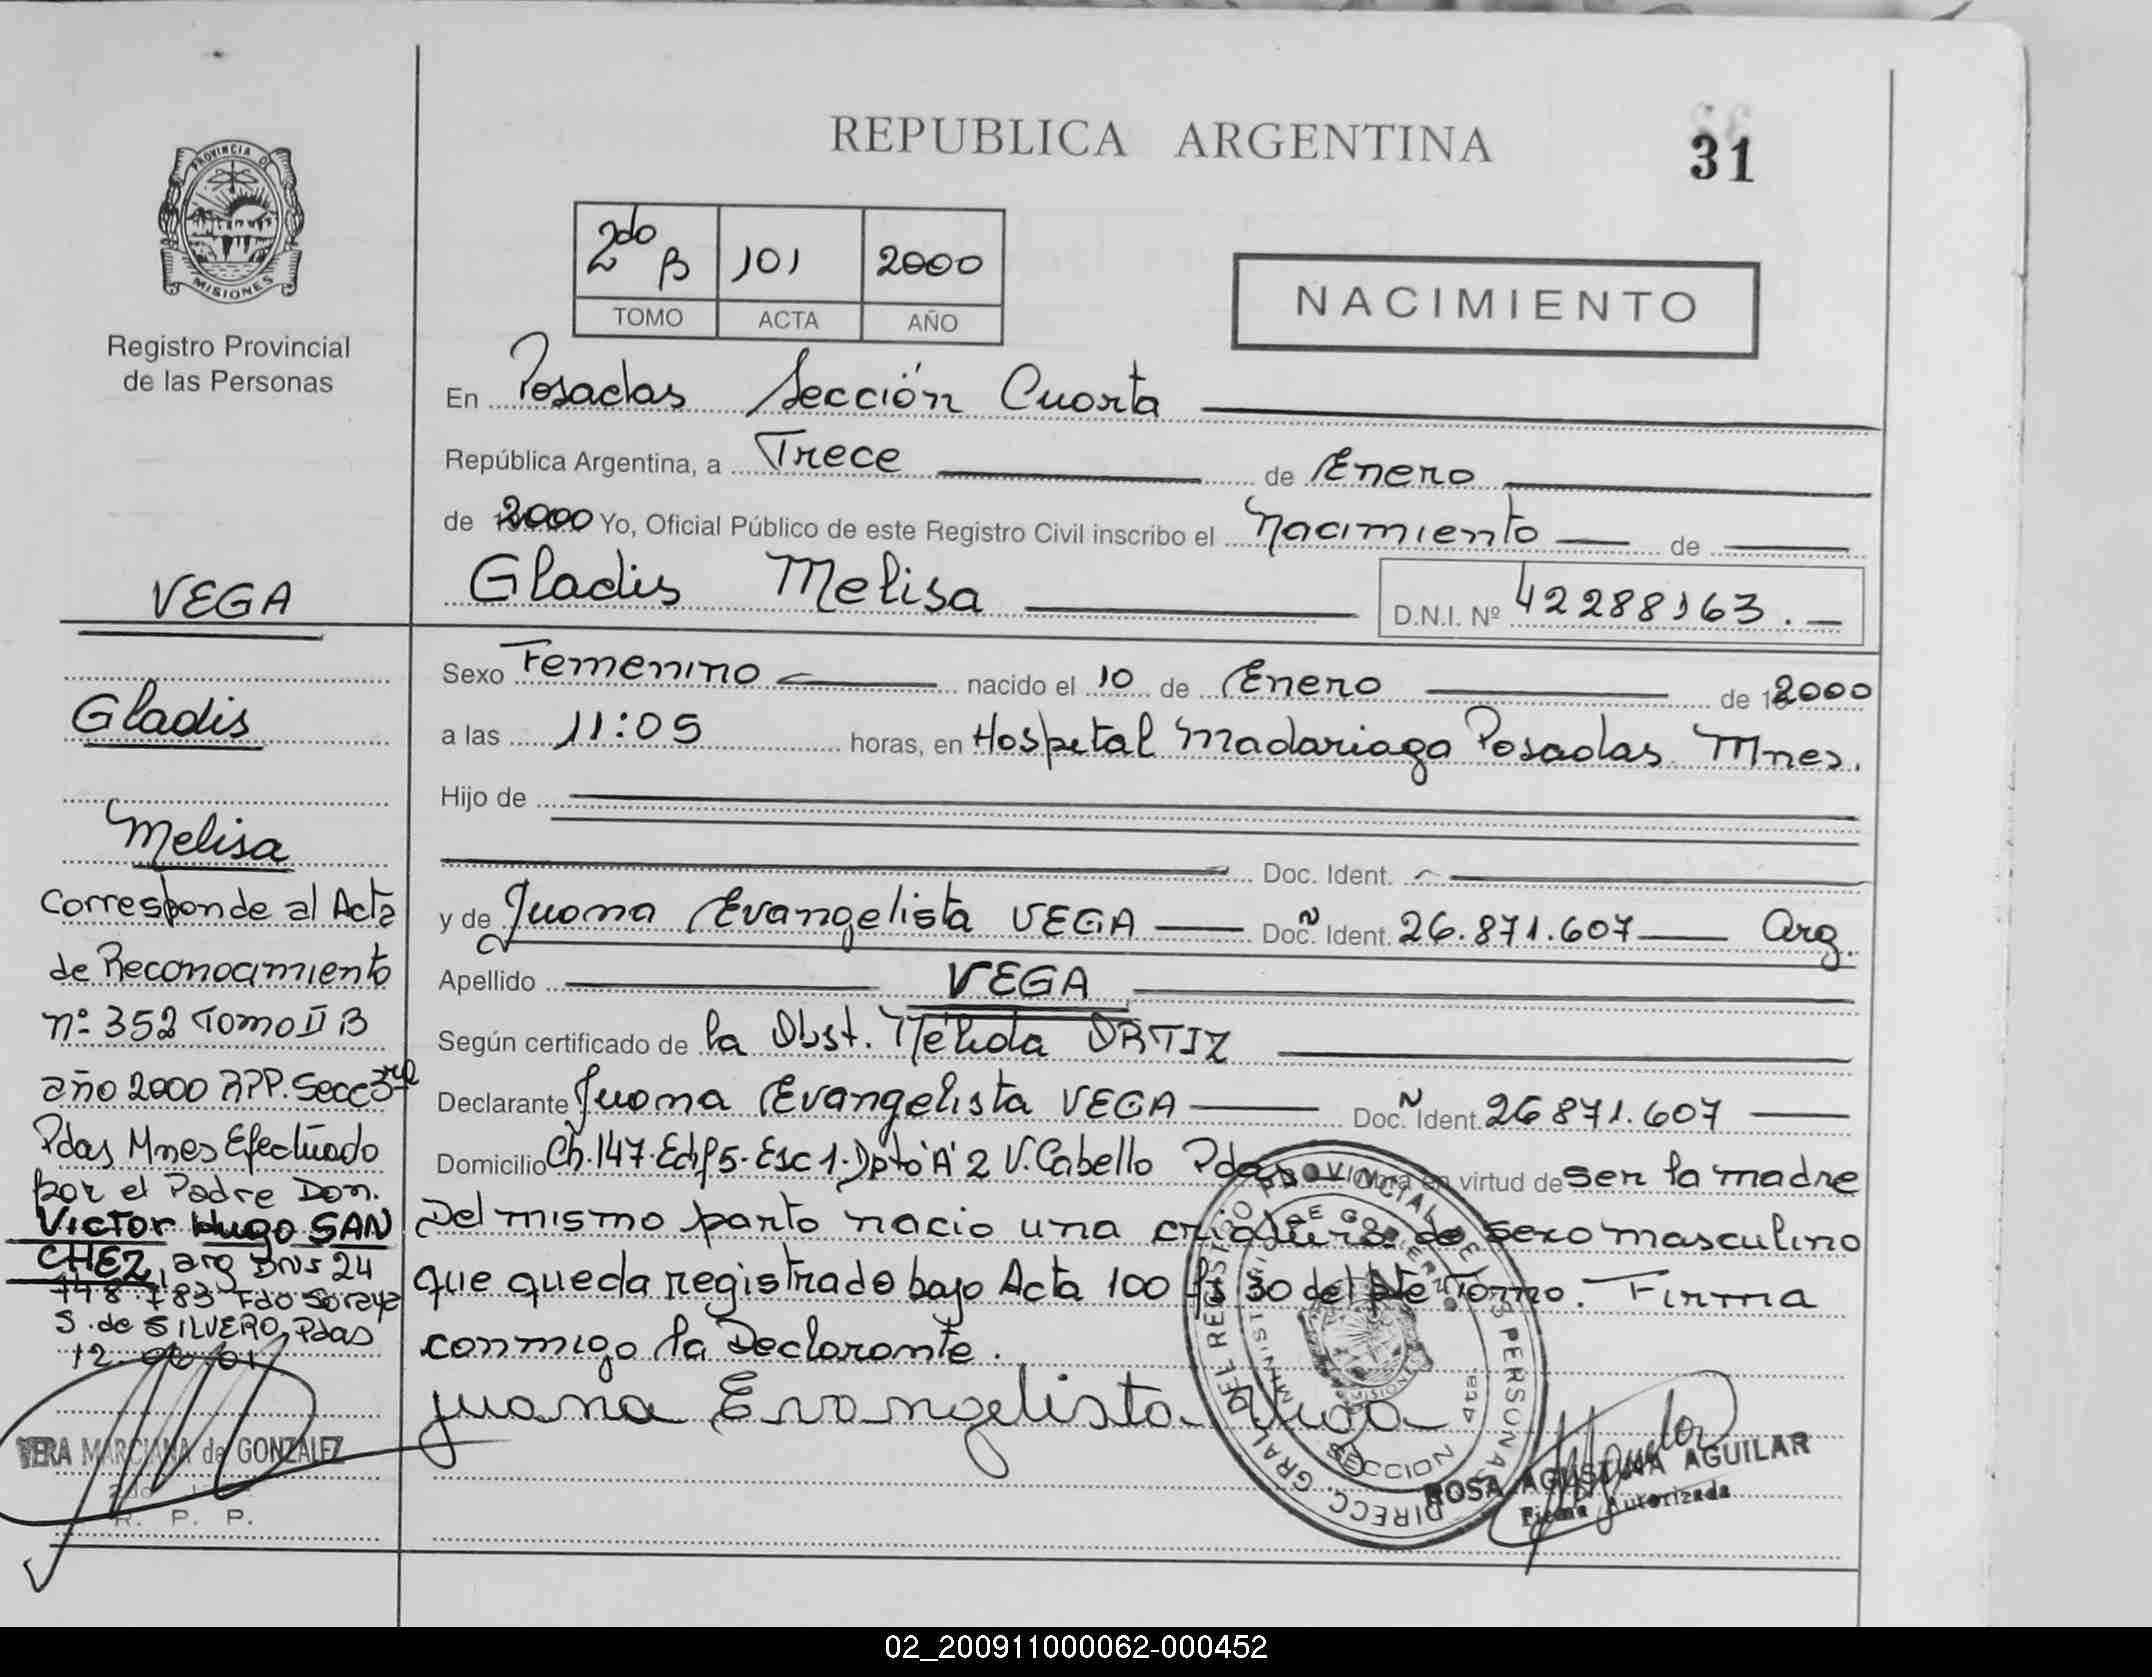 REPUBLICA ARGENTINA
31
PROVINCIA D
MISIONES
Registro Provincial
de las Personas
2do B 101 2000
TOMO ACTA AÑO
NACIMIENTO
En Posadas Sección Cuarta
República Argentina, a Trece de Enero
de 2000 Yo, Oficial Público de este Registro Civil inscribo el Nacimiento de
Gladis Melisa D.N.I. Nº 42288163.-
Sexo Femenino nacido el 10 de Enero de 2000
a las 11:05 horas, en Hospital Madariaga Posadas Mnes.
Hijo de
Doc. Ident.
y de Juana Evangelista VEGA Doc. Ident. 26.871.607 Arg.
Apellido VEGA
Según certificado de la Obst. Nélida ORTIZ
Declarante Juana Evangelista VEGA Doc. Ident. 26871.607
Domicilio Ch.147.Edf5.Esc1.Dpto'A'2 V.Cabello Pdas Obra en virtud de ser la madre
Del mismo parto nacio una criatura de sexo masculino
que queda registrado bajo Acta 100 fs 30 del Pte Tomo. Firma
conmigo la Declarante.
Juana Evangelista Vega
VEGA
Gladis
Melisa
Corresponde al Acta
de Reconocimiento
nº 352 Tomo II B
año 2000 RPP. Secc 3ra
Pdas Mnes Efectuado
por el Padre Don.
VICTOR Hugo SAN
CHEZ, arg DNI 24
748.783 Fdo Soraya
S. de SILVERO, Pdas
12.06.01
VERA MARCIANA de GONZALEZ
R. P. P.
DIRECC. GRAL. DEL REGISTRO PROVINCIAL DE LAS PERSONAS
MINISTERIO DE GOBIERNO
MISIONES
SECCION 4ta
ROSA AGUSTINA AGUILAR
Firma Autorizada
02_200911000062-000452